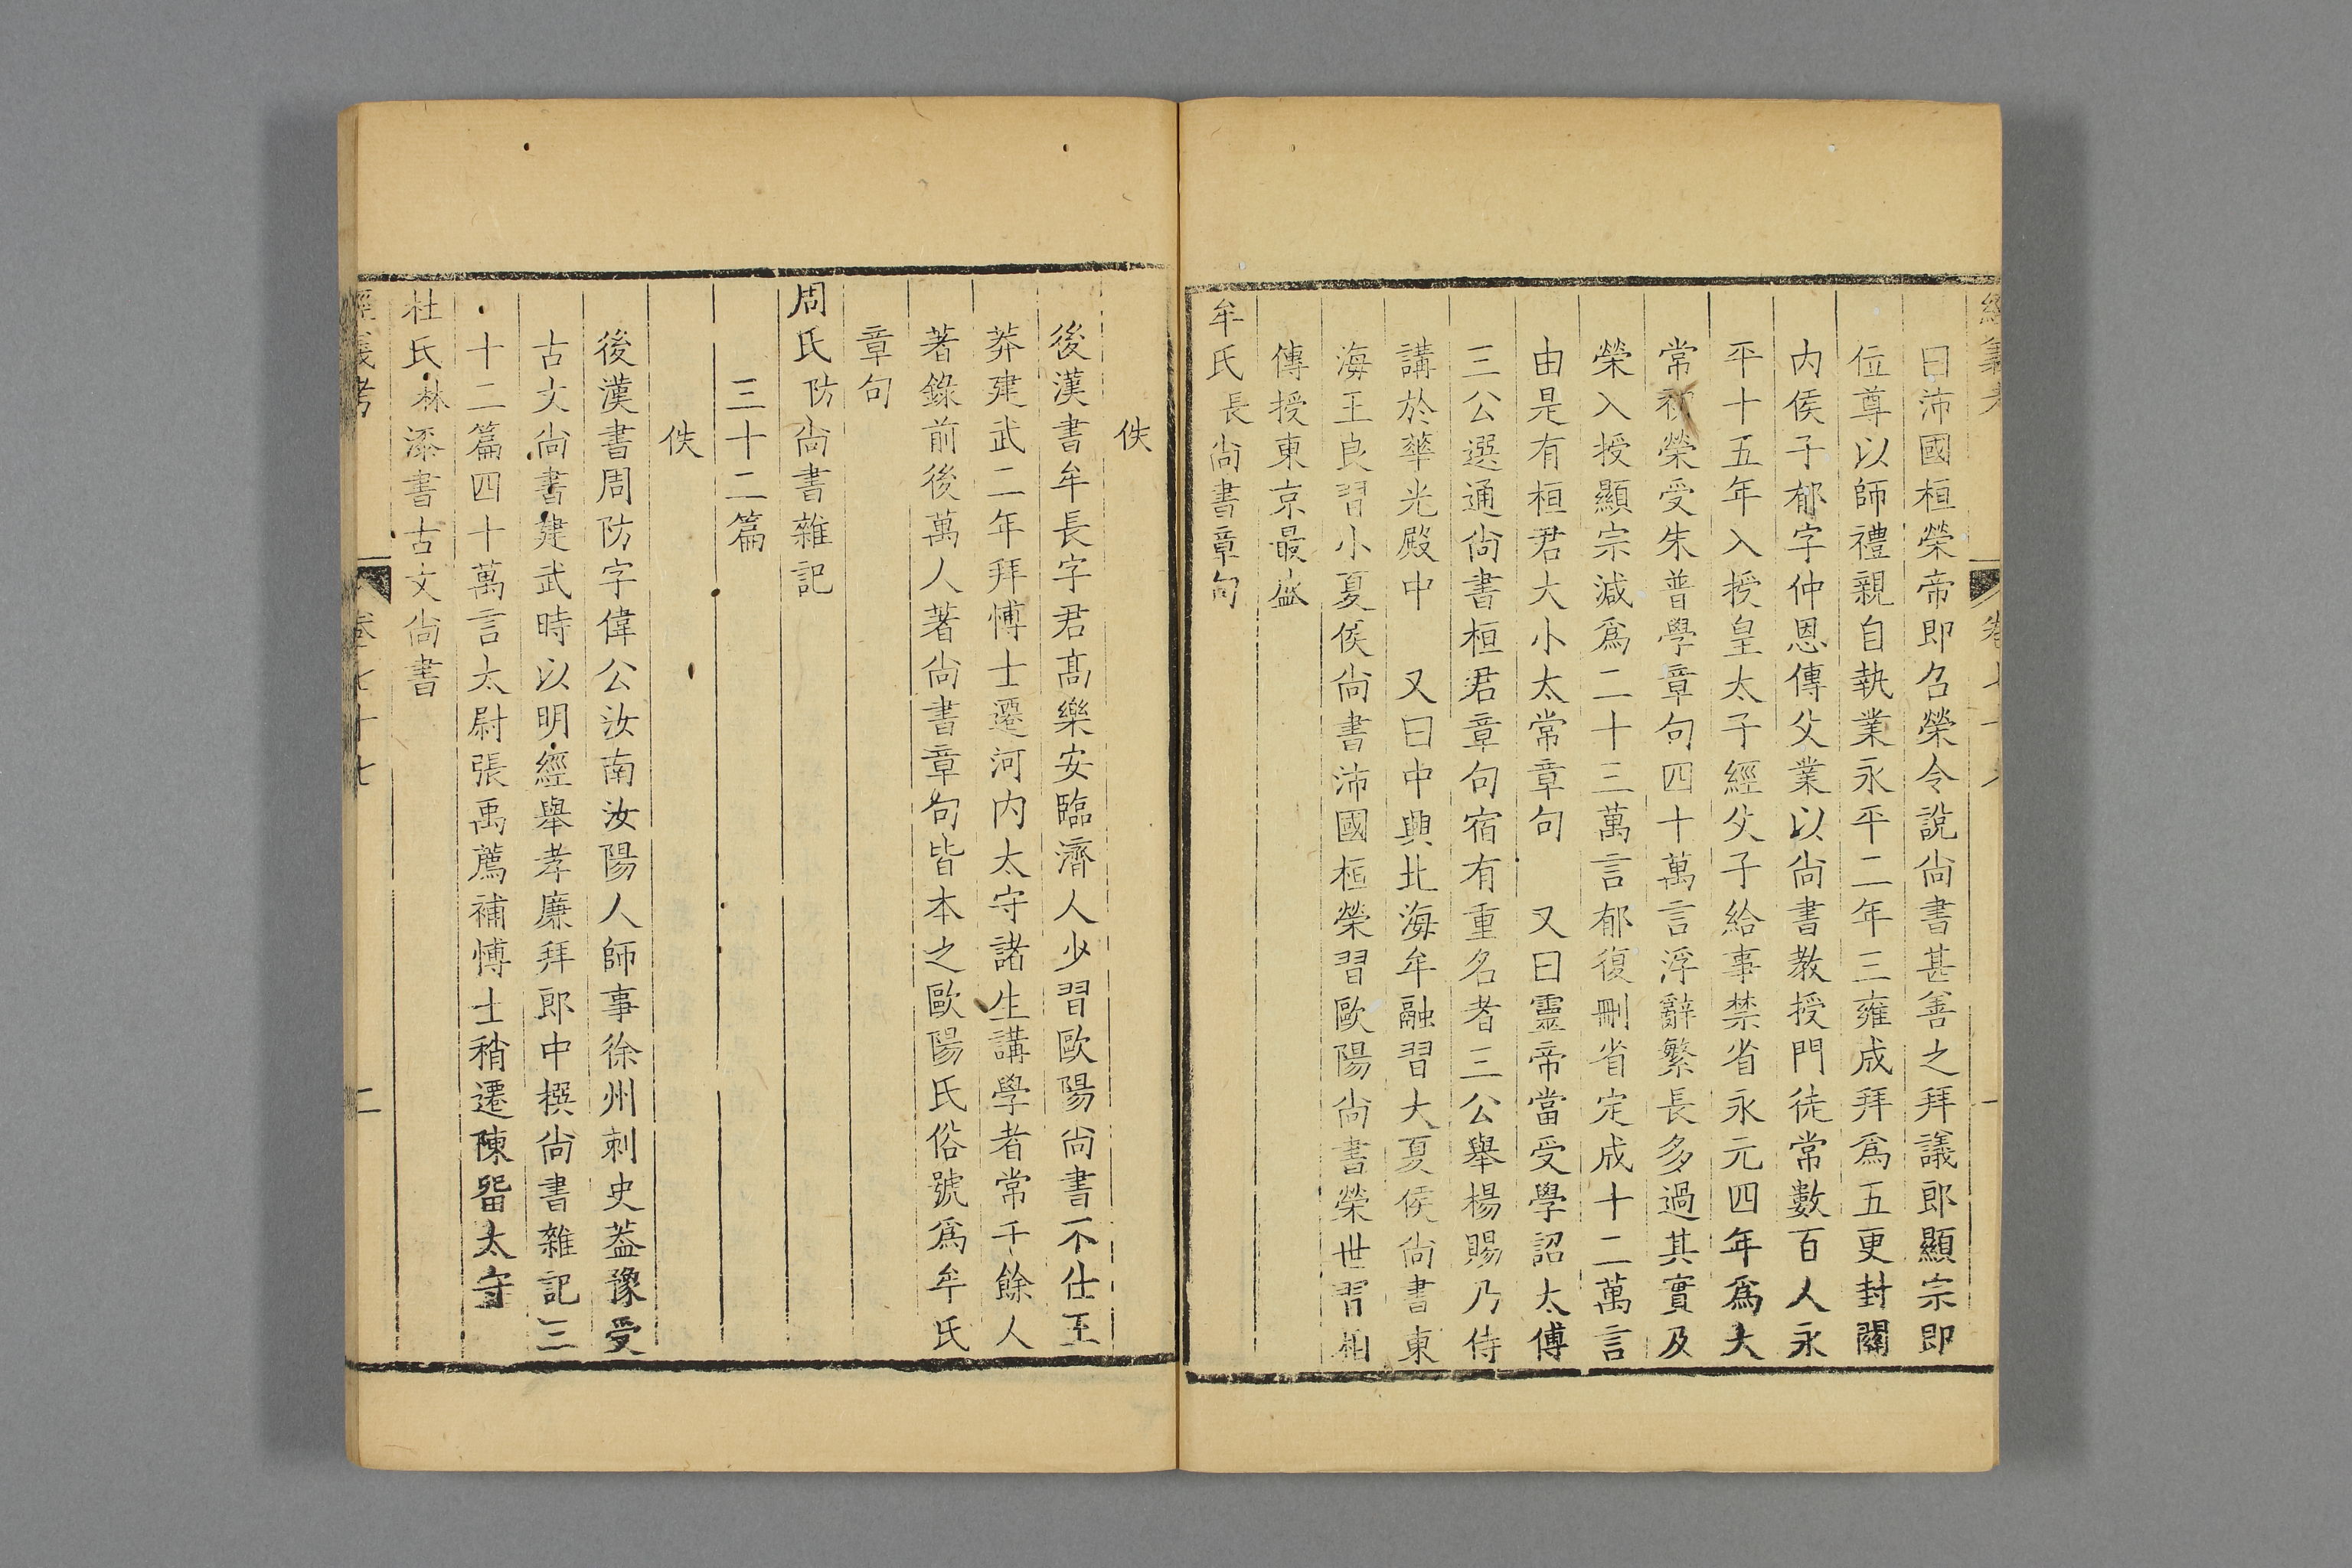 曰沛國桓榮帝即召榮令說尚書甚善之拜議郎顯宗即
位尊以師禮親自執業永平二年三雍成拜爲五更封關
内侯子郁字仲恩傳父業以尚書教授門徒常數百人永
平十五年入授皇太子經父子給事禁省永元四年爲大
常初榮受朱普學章句四十萬言浮辭繁長多過其實及
榮入授顯宗減爲二十三萬言郁復刪省定成十二萬言
由是有桓君大小太常章句　又曰靈帝當受學詔太傅
三公選通尚書桓君章句宿有重名者三公舉楊賜乃侍
講於華光殿中　又曰中興北海牟融習大夏侯尚書東
海王良習小夏侯尚書沛國桓榮習歐陽尚書榮世習相
傳授東京最盛
牟氏長尚書章句
佚
後漢書牟長字君高樂安臨濟人少習歐陽尚書不仕王
莽建武二年拜博士遷河内太守諸生講學者常千餘人
著錄前後萬人著尚書章句皆本之歐陽氏俗號爲牟氏
章句
周氏防尚書雜記
三十二篇
佚
後漢書周防字偉公汝南汝陽人師事徐州刺史蓋豫受
古文尚書建武時以明經舉孝廉拜郎中撰尚書雜記三
十二篇四十萬言太尉張禹薦補博士稍遷陳留太守
杜氏林漆書古文尚書
經義考　卷七十七　二